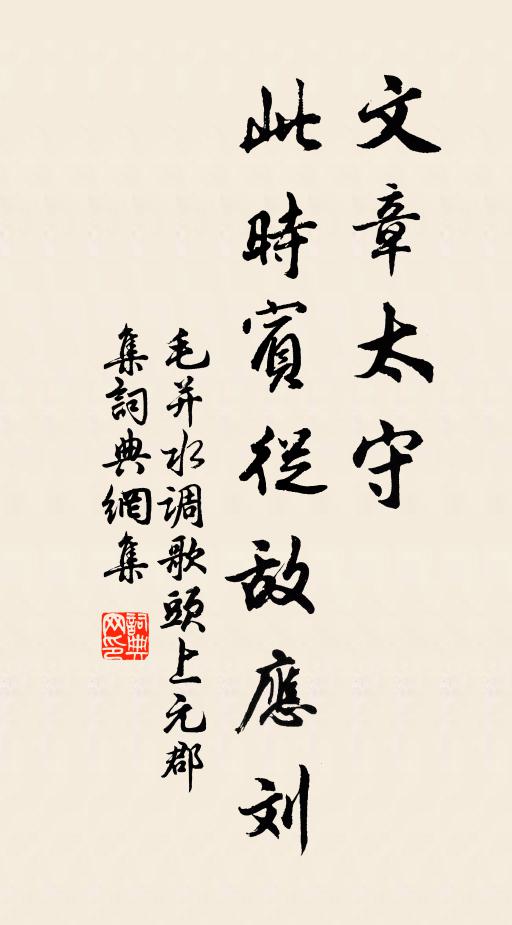 文章太守
此時賓從敌應刘
毛并水調歌頭上元郡
集詞典網集
詞典网印